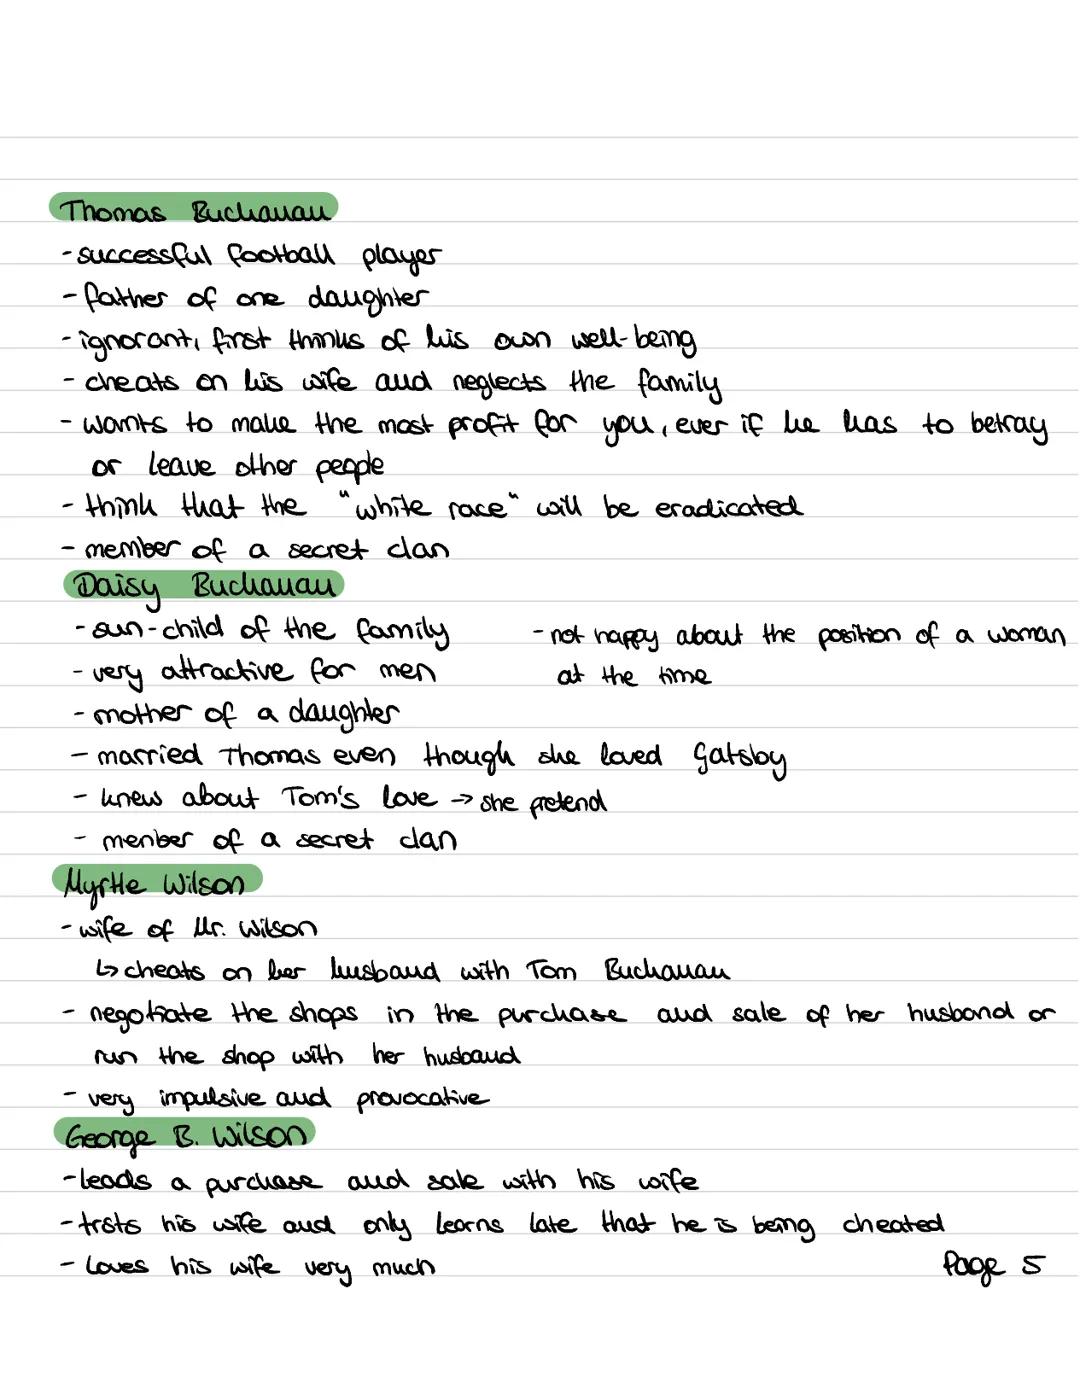 Thomas Buchanan
- successful football player
- father of one daughter
- ignorant, first thinks of his own well-being
- cheats on his wife and neglects the family
- wants to make the most profit for you, ever if he has to betray
or leave other people
- think that the "white race" will be eradicated
- member of a secret clan
Daisy Buchanan
- sun-child of the family
- very attractive for men
- mother of a daughter
- married Thomas even though she loved Gatsby
- knew about Tom's love → she pretend
- menber of a secret clan
- not happy about the position of a woman
at the time
Myrtle Wilson
- wife of Mr. Wilson
↳ cheats on her husband with Tom Buchanan
- negotiate the shops in the purchase and sale of her husband or
run the shop with her husband
- very impulsive and provocative
George B. Wilson
- leads a purchase and sale with his wife
- trsts his wife and only learns late that he is being cheated
- loves his wife very much
Page 5